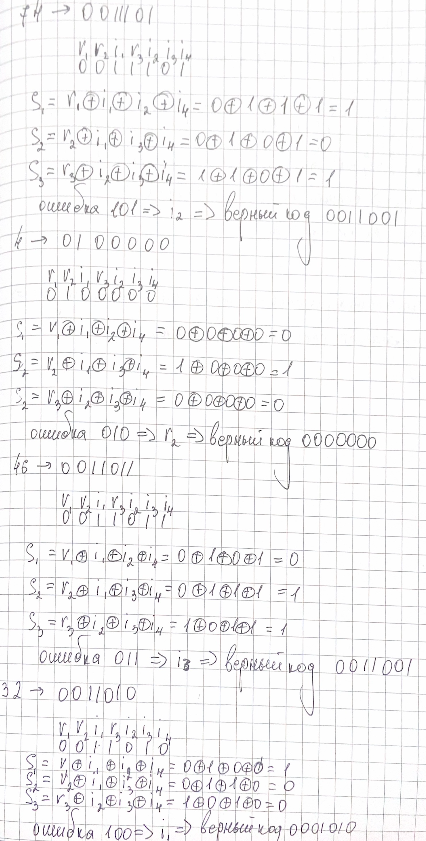 74 → 0011101
r₁ r₂ i₁ r₃ i₂ i₃ i₄
0 0 1 1 1 0 1
S₁ = r₁⊕i₁⊕i₂⊕i₄ = 0⊕1⊕1⊕1 = 1
S₂ = r₂⊕i₁⊕i₃⊕i₄ = 0⊕1⊕0⊕1 = 0
S₃ = r₃⊕i₂⊕i₃⊕i₄ = 1⊕1⊕0⊕1 = 1
ошибка 101 => i₂ => верный код 0011001
4 → 0100000
r₁ r₂ i₁ r₃ i₂ i₃ i₄
0 1 0 0 0 0 0
S₁ = r₁⊕i₁⊕i₂⊕i₄ = 0⊕0⊕0⊕0 = 0
S₂ = r₂⊕i₁⊕i₃⊕i₄ = 1⊕0⊕0⊕0 = 1
S₂ = r₃⊕i₂⊕i₃⊕i₄ = 0⊕0⊕0⊕0 = 0
ошибка 010 => r₂ => верный код 0000000
46 → 0011011
r₁ r₂ i₁ r₃ i₂ i₃ i₄
0 0 1 1 0 1 1
S₁ = r₁⊕i₁⊕i₂⊕i₄ = 0⊕1⊕0⊕1 = 0
S₂ = r₂⊕i₁⊕i₃⊕i₄ = 0⊕1⊕1⊕1 = 1
S₃ = r₃⊕i₂⊕i₃⊕i₄ = 1⊕0⊕1⊕1 = 1
ошибка 011 => i₃ => верный код 0011001
32 → 0011010
r₁ r₂ i₁ r₃ i₂ i₃ i₄
0 0 1 1 0 1 0
S₁ = r₁⊕i₁⊕i₂⊕i₄ = 0⊕1⊕0⊕0 = 1
S₂ = r₂⊕i₁⊕i₃⊕i₄ = 0⊕1⊕1⊕0 = 0
S₃ = r₃⊕i₂⊕i₃⊕i₄ = 1⊕0⊕1⊕0 = 0
ошибка 100 => i₁ => верный код 0001010